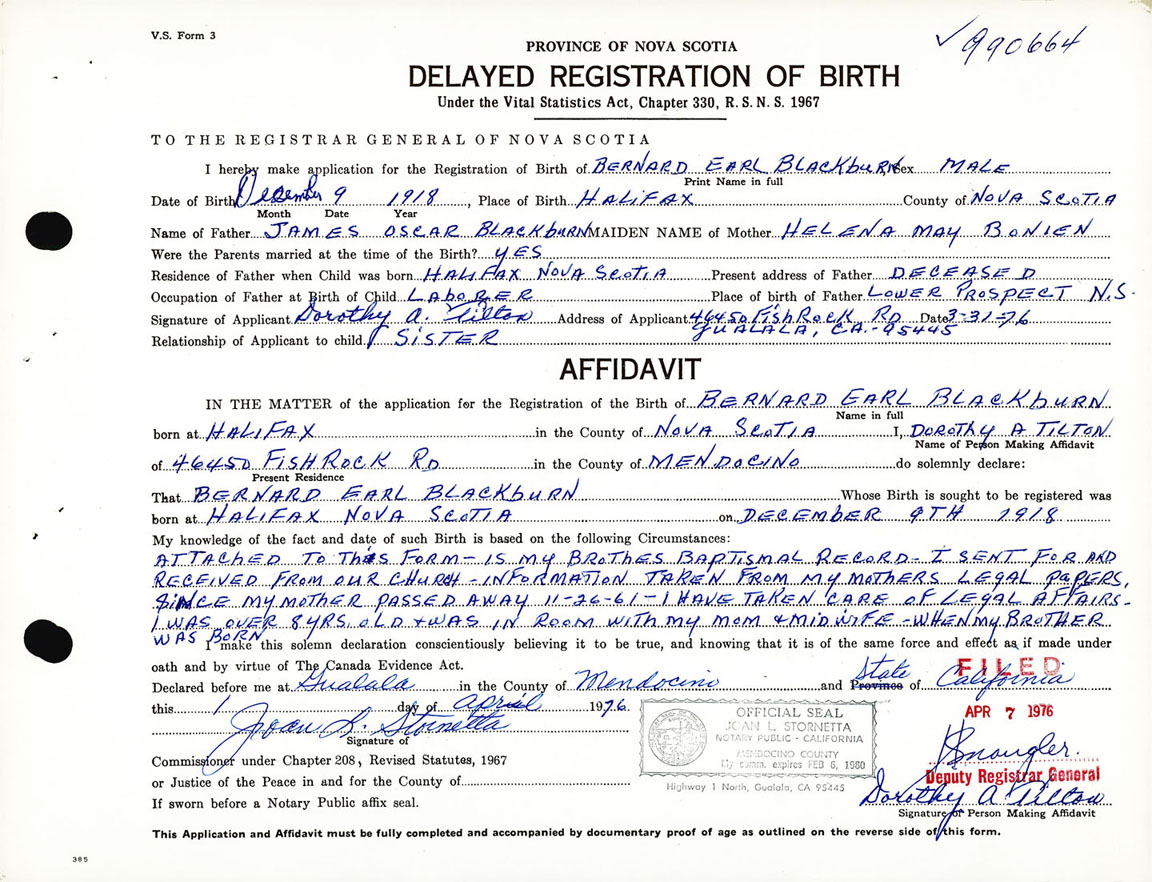 V.S. Form 3
✓990664
PROVINCE OF NOVA SCOTIA
DELAYED REGISTRATION OF BIRTH
Under the Vital Statistics Act, Chapter 330, R.S.N.S. 1967
TO THE REGISTRAR GENERAL OF NOVA SCOTIA
I hereby make application for the Registration of Birth of BERNARD EARL BLACKBURN Sex MALE
Print Name in full
Date of Birth December 9 1918, Place of Birth HALIFAX County of NOVA SCOTIA
Month Date Year
Name of Father JAMES OSCAR BLACKBURN MAIDEN NAME of Mother HELENA MAY BONIEN
Were the Parents married at the time of the Birth? YES
Residence of Father when Child was born HALIFAX NOVA SCOTIA Present address of Father DECEASED
Occupation of Father at Birth of Child LABORER Place of birth of Father LOWER PROSPECT N.S.
Signature of Applicant Dorothy A. Tilton Address of Applicant 46450 FISH ROCK RD Date 3-31-76
GUALALA, CA.-95445
Relationship of Applicant to child SISTER
AFFIDAVIT
IN THE MATTER of the application for the Registration of the Birth of BERNARD EARL BLACKBURN
Name in full
born at HALIFAX in the County of NOVA SCOTIA I, DOROTHY A TILTON
Name of Person Making Affidavit
of 46450 FISH ROCK RD in the County of MENDOCINO do solemnly declare:
Present Residence
That BERNARD EARL BLACKBURN Whose Birth is sought to be registered was
born at HALIFAX NOVA SCOTIA on DECEMBER 9TH 1918
My knowledge of the fact and date of such Birth is based on the following Circumstances:
ATTACHED TO THIS FORM - IS MY BROTHES BAPTISMAL RECORD - I SENT FOR AND
RECEIVED FROM OUR CHURCH - INFORMATION TAKEN FROM MY MOTHERS LEGAL PAPERS,
SINCE MY MOTHER PASSED AWAY 11-26-61 - I HAVE TAKEN CARE OF LEGAL AFFAIRS -
I WAS OVER 8 YRS. OLD & WAS IN ROOM WITH MY MOM & MIDWIFE - WHEN MY BROTHER
WAS BORN
I make this solemn declaration conscientiously believing it to be true, and knowing that it is of the same force and effect as if made under
oath and by virtue of The Canada Evidence Act.
FILED
State
Declared before me at Gualala in the County of Mendocino and Province of California
this 1 day of april 1976.
APR 7 1976
Joan L. Stornetta
Signature of
OFFICIAL SEAL
JOAN L. STORNETTA
NOTARY PUBLIC - CALIFORNIA
MENDOCINO COUNTY
My comm. expires FEB 6, 1980
Highway 1 North, Gualala, CA 95445
Commissioner under Chapter 208, Revised Statutes, 1967
or Justice of the Peace in and for the County of
If sworn before a Notary Public affix seal.
Deputy Registrar General
Dorothy A Tilton
Signature of Person Making Affidavit
This Application and Affidavit must be fully completed and accompanied by documentary proof of age as outlined on the reverse side of this form.
385